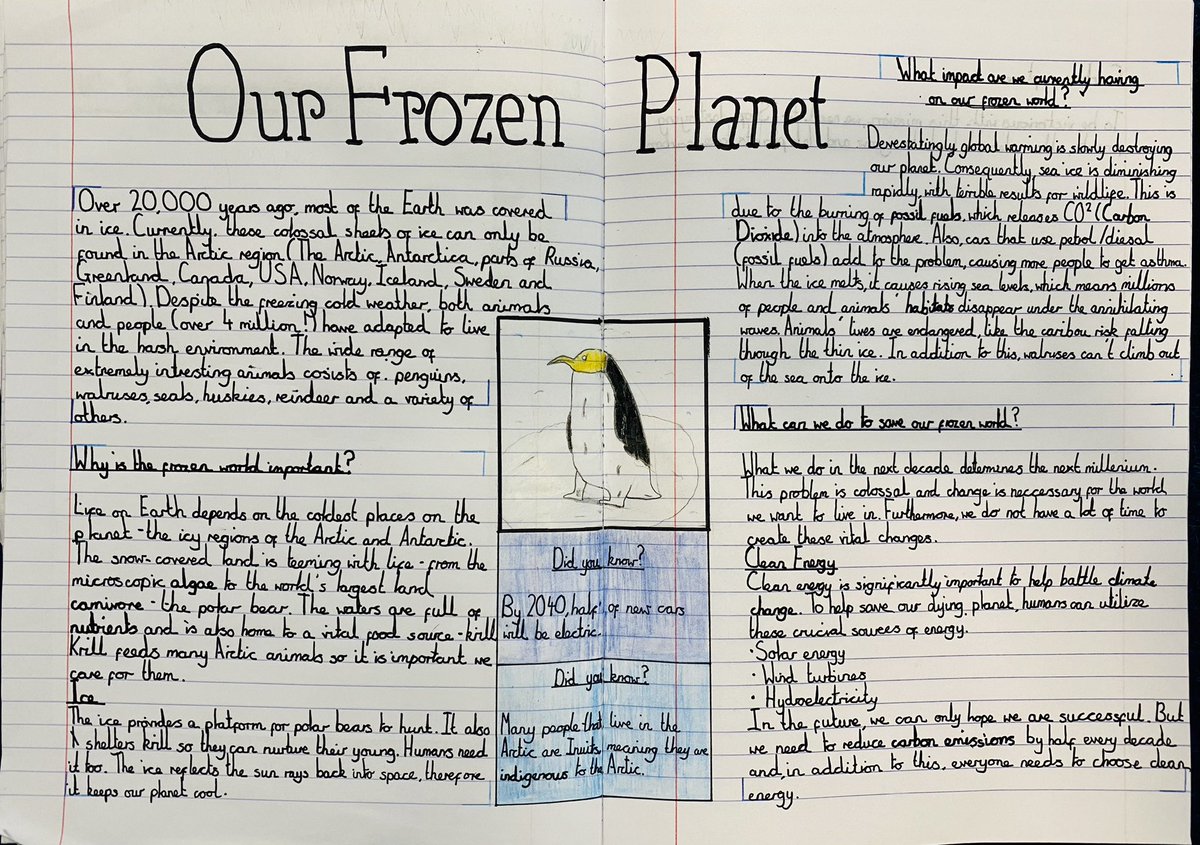 Our Frozen Planet
Over 20,000 years ago, most of the Earth was covered
in ice. Currently, these colossal sheets of ice can only be
found in the Arctic region (The Arctic, Antarctica, parts of Russia,
Greenland, Canada, USA, Norway, Iceland, Sweden and
Finland). Despite the freezing cold weather, both animals
and people (over 4 million!) have adapted to live
in the harsh environment. The wide range of
extremely intresting animals cosists of: penguins,
walruses, seals, huskies, reindeer and a variety of
others.
Why is the frozen world important?
Life on Earth depends on the coldest places on the
planet - the icy regions of the Arctic and Antarctic.
The snow-covered land is teeming with life - from the
microscopic algae to the world's largest land
carnivore - the polar bear. The waters are full of
nutrients and is also home to a vital food source - krill
Krill feeds many Arctic animals so it is important we
care for them.
Ice
The ice provides a platform for polar bears to hunt. It also
shelters krill so they can nurture their young. Humans need
it too. The ice reflects the sun rays back into space, therefore
it keeps our planet cool.
Did you know?
By 2040, half of new cars
will be electric.
Did you know?
Many people that live in the
Arctic are Inuits, meaning they are
indigenous to the Arctic.
What impact are we currently having
on our frozen world?
Devestatingly global warming is slowly destroying
our planet. Consequently, sea ice is diminishing
rapidly, with terrible results for wildlife. This is
due to the burning of fossil fuels, which releases CO² (Carbon
Dioxide) into the atmosphere. Also, cars that use petrol/diesal
(fossil fuels) add to the problem, causing more people to get asthma.
When the ice melts, it causes rising sea levels, which means millions
of people and animals' habitats disappear under the annihilating
waves. Animals' lives are endangered, like the caribou risk falling
through the thin ice. In addition to this, walruses can't climb out
of the sea onto the ice.
What can we do to save our frozen world?
What we do in the next decade determines the next millenium.
This problem is colossal and change is neccessary for the world
we want to live in. Furthermore, we do not have a lot of time to
create these vital changes.
Clean Energy
Clean energy is significantly important to help battle climate
change. To help save our dying planet, humans can utilize
these crucial sources of energy.
· Solar energy
· Wind turbines
· Hydroelectricity
In the future, we can only hope we are successful. But
we need to reduce carbon emissions by half every decade
and, in addition to this, everyone needs to choose clean
energy.